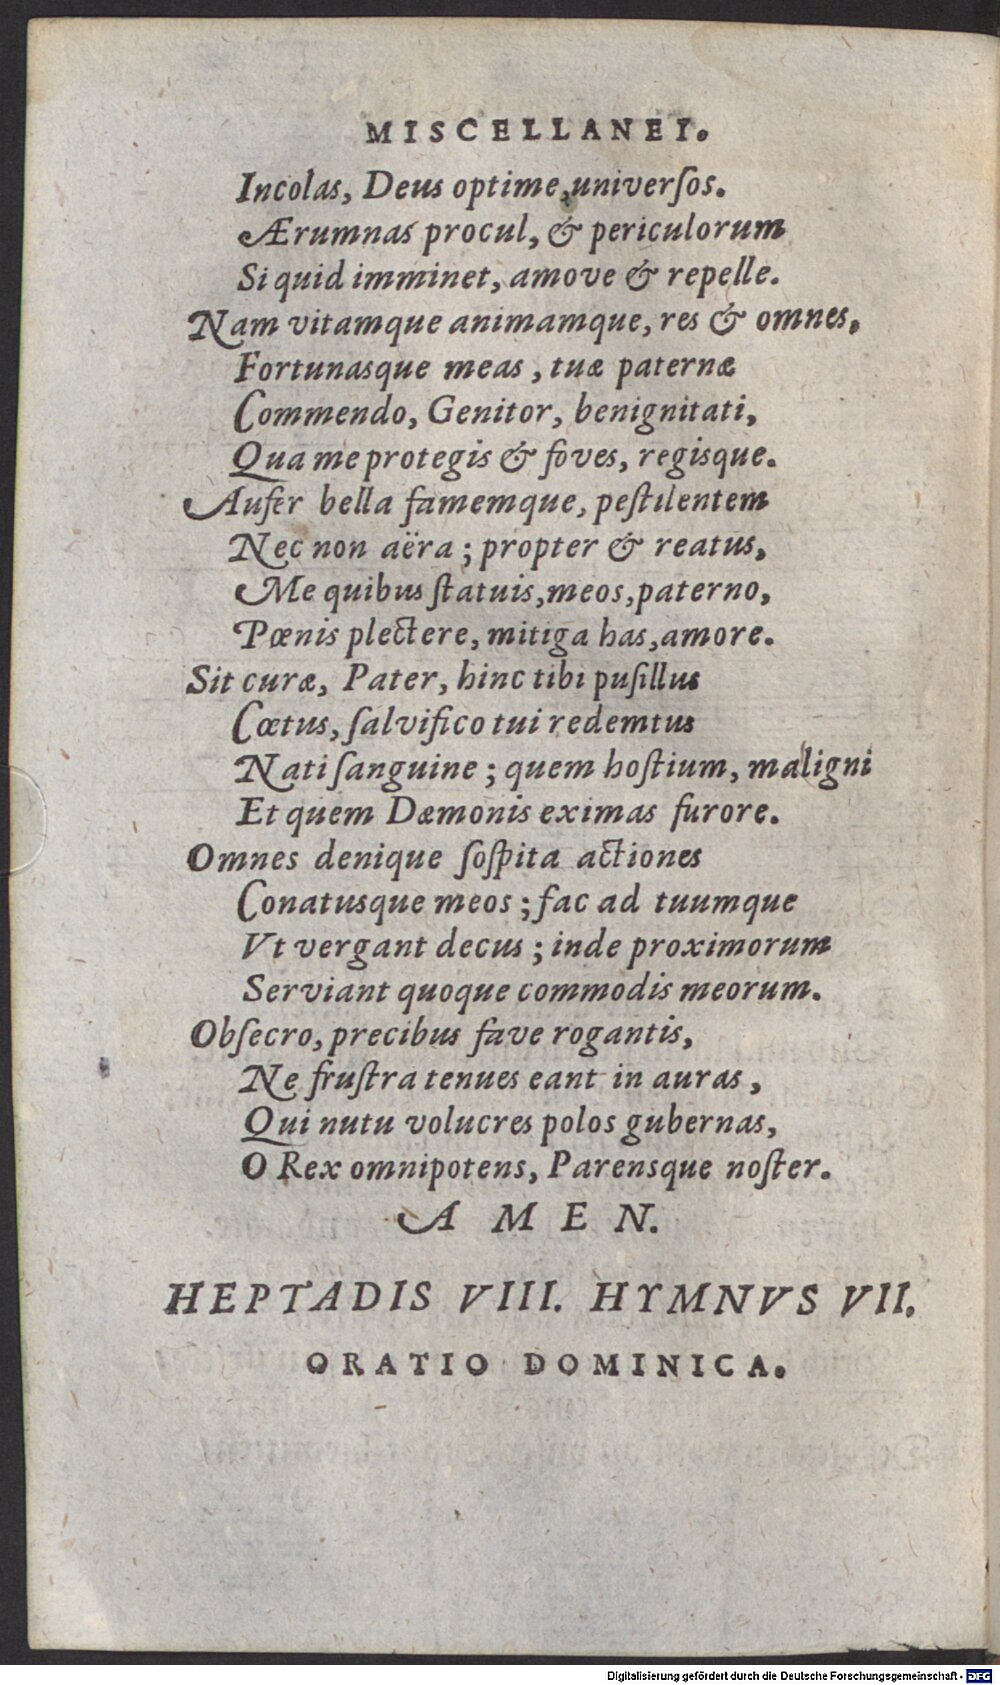 MISCELLANEI.
Incolas, Deus optime, univerſos.
Ærumnas procul, & periculorum
Si quid imminet, amove & repelle.
Nam vitamque animamque, res & omnes,
Fortunasque meas, tuæ paternæ
Commendo, Genitor, benignitati,
Qua me protegis & foves, regisque.
Aufer bella famemque, peſtilentem
Nec non aëra; propter & reatus,
Me quibus ſtatuis, meos, paterno,
Pœnis plectere, mitiga has, amore.
Sit curæ, Pater, hinc tibi puſillus
Cœtus, ſalvifico tui redemtus
Nati ſanguine; quem hoſtium, maligni
Et quem Dæmonis eximas furore.
Omnes denique ſoſpita actiones
Conatusque meos; fac ad tuumque
Vt vergant decus; inde proximorum
Serviant quoque commodis meorum.
Obſecro, precibus fave rogantis,
Ne fruſtra tenues eant in auras,
Qui nutu volucres polos gubernas,
O Rex omnipotens, Parensque noſter.
AMEN.
HEPTADIS VIII. HYMNVS VII.
ORATIO DOMINICA.
Digitalisierung gefördert durch die Deutsche Forschungsgemeinschaft - DFG